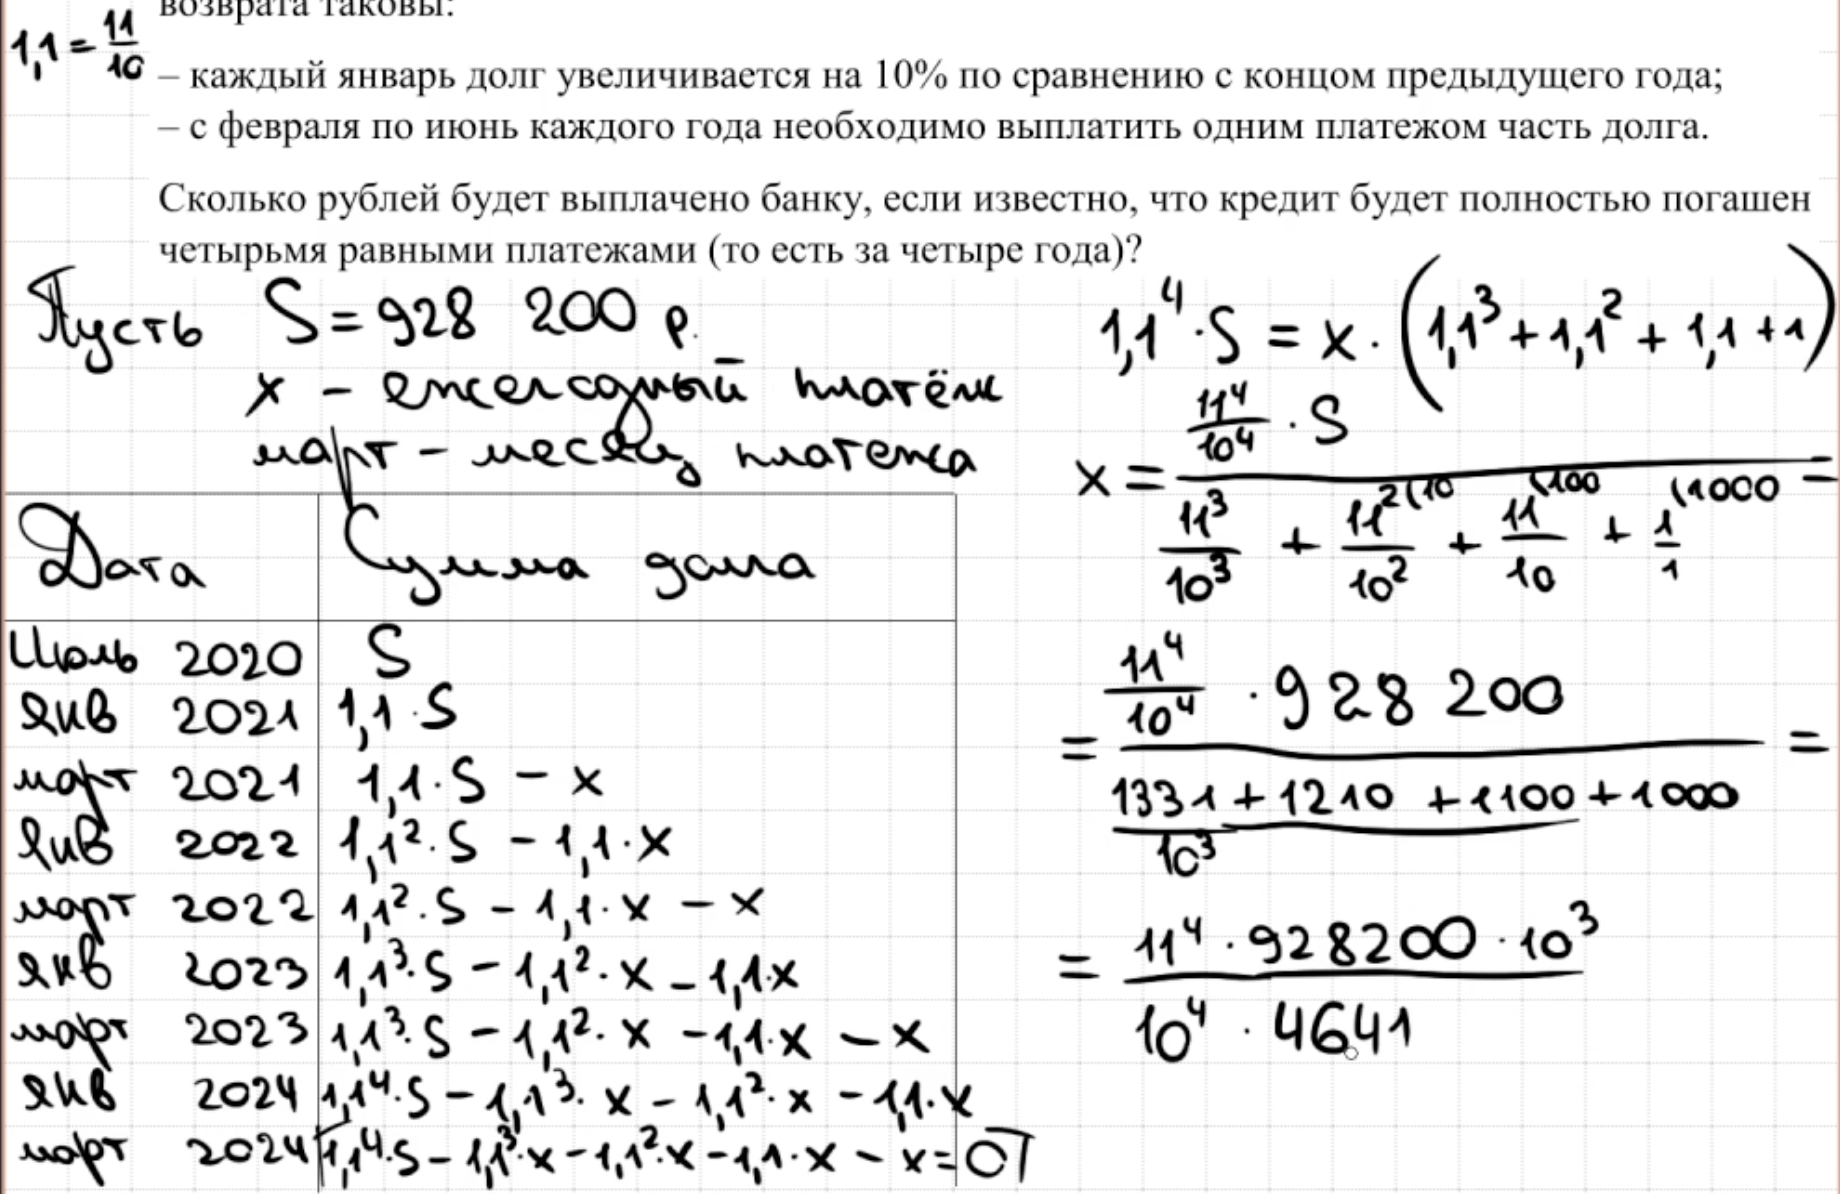 возврата таковы:
1,1 = 11/10
– каждый январь долг увеличивается на 10% по сравнению с концом предыдущего года;
– с февраля по июнь каждого года необходимо выплатить одним платежом часть долга.
Сколько рублей будет выплачено банку, если известно, что кредит будет полностью погашен
четырьмя равными платежами (то есть за четыре года)?
Пусть S = 928 200 р.
x – ежегодный платёж
март – месяц платежа
Дата Сумма долга
Июль 2020 S
янв 2021 1,1·S
март 2021 1,1·S – x
янв 2022 1,1²·S – 1,1·x
март 2022 1,1²·S – 1,1·x – x
янв 2023 1,1³·S – 1,1²·x – 1,1·x
март 2023 1,1³·S – 1,1²·x – 1,1·x – x
янв 2024 1,1⁴·S – 1,1³·x – 1,1²·x – 1,1·x
март 2024 1,1⁴·S – 1,1³·x – 1,1²·x – 1,1·x – x = 0
1,1⁴·S = x·(1,1³ + 1,1² + 1,1 + 1)
11⁴/10⁴ · S
x = =
11³/10³ + 11²/10² (10 + 11/10 (100 + 1/1 (1000
11⁴/10⁴ · 928 200
= =
1331 + 1210 + 1100 + 1000
10³
11⁴ · 928200 · 10³
=
10⁴ · 4641